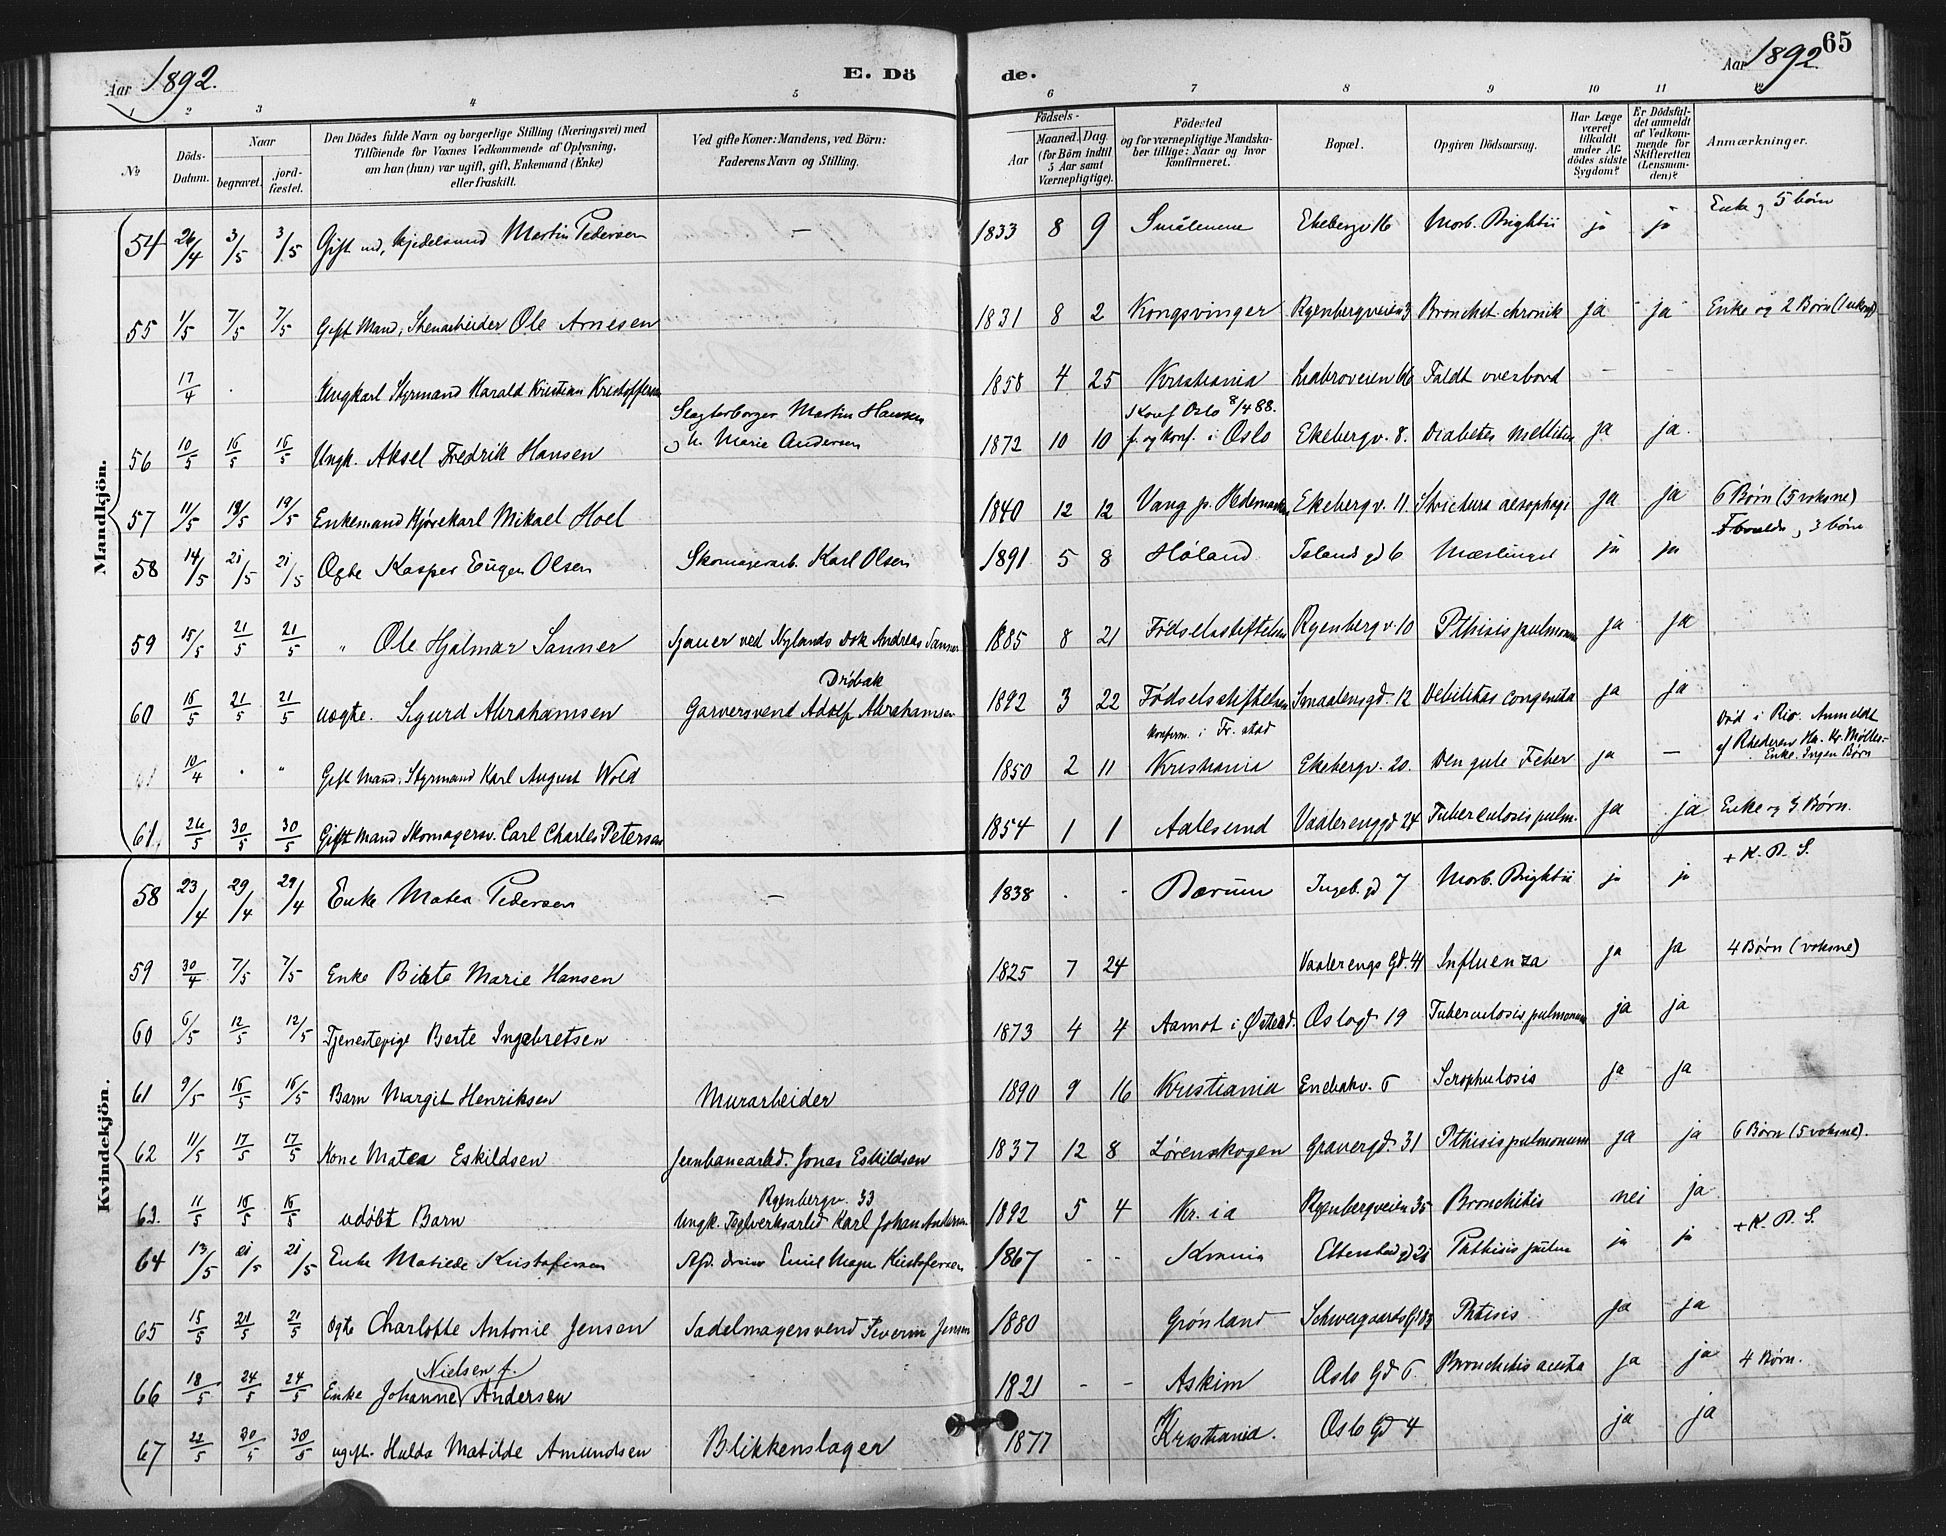 Aar 1892. E. Dö de. Aar 1892. 65
1 2 3 4 5 6 7 8 9 10 11 12
No
Döds-Datum.
Naar
begravet.
jordfæstet.
Den Dödes fulde Navn og borgerlige Stilling (Næringsvei) med
Tilföiende for Voxnes Vedkommende af Oplysning,
om han (hun) var ugift, gift, Enkemand (Enke)
eller fraskilt.
Ved gifte Koner: Mandens, ved Börn:
Faderens Navn og Stilling.
Födsels-
Aar
Maaned. Dag.
(for Börn indtil
5 Aar samt
Værnepligtige).
Födested
og for værnepligtige Mandskaber tillige: Naar og hvor
konfirmeret.
Bopæl.
Opgiven Dödsaarsag.
Har Læge
været
tilkaldt
under Afdödes sidste
Sygdom?
Er Dödsfaldet anmeldt
af Vedkommende for
Skifteretten
(Lensmanden)?
Anmærkninger.
Mandkjön.
54 26/4 3/5 3/5 Gift md, Martin Pedersen — 1833 8 9 Smålenene Ekebergv 16 Morb. Brightii ja ja Enke og 5 børn
55 1/5 7/5 7/5 Gift Mand, Stenarbeider Ole Arnesen 1831 8 2 Kongsvinger Ryenbergveien 3 Bronchit. chronik ja ja Enke og 2 Børn (1 uksn)
17/4 . Ungkarl Styrmand Harald Kristian Kristoffersen 1858 4 25 Kristiania Liabroveien 66 Faldt overbord — —
Konf Oslo 8/4 88.
56 10/5 16/5 16/5 Ungk. Aksel Fredrik Hansen Slagterborger Martin Hansen og h. Marie Andersen 1872 10 10 f. og konf. i Oslo Ekebergv. 8. Diabetes mellitus ja ja.
57 11/5 18/5 19/5 Enkemand Kjørekarl Mikael Hoel 1840 12 12 Vang p. Hedemarken Ekebergv. 11. Strictura aesophagi ja ja 6 Børn (5 voksne)
58 14/5 21/5 21/5 Ogte Kasper Eugen Olsen Skomagerarb. Karl Olsen 1891 5 8 Høland Islands gd 6 Mæslinger ja ja Foreldre, 3 børn
59 15/5 21/5 21/5 " Ole Hjalmar Sanner Sjauer ved Nylands Dok Andreas Sanner 1885 8 21 Fødselsstiftelsen Ryenbergv 10 Pthisis pulmonum ja ja
60 16/5 21/5 21/5 uægte. Sigurd Abrahamsen Drøbak Garversvend Adolf Abrahamsen 1892 3 22 Fødselsstiftelsen Smaalensgd. 12 Debilitas congenita ja ja
konfirm. i Fr. stad
61 10/4 . " Gift Mand. Styrmand Karl August Wold 1850 2 11 Kristiania Ekebergv. 20. Den gule Feber ja — Død i Rio. Anmeldt
af Rhederen Hr. Kr. Møller
Enke. Ingen Børn
61. 26/5 30/5 30/5 Gift Mand Skomagersv. Carl Charles Petersen 1854 1 1 Aalesund Vaalerenggd 24 Tuberculosis pulm. ja ja Enke og 3 Børn.
Kvindekjön.
58 23/4 29/4 29/4 Enke Matea Pedersen — 1838 . . Bærum Ingeb. gd 7 Morb. Brightii ja ja + K. D. S.
59 30/4 7/5 7/5 Enke Birte Marie Hansen 1825 7 24 Vaalerengs Gd. 41 Influenza ja ja 4 Børn (voksne)
60 6/5 12/5 12/5 Tjenestepige Berte Ingebretsen 1873 4 4 Aamot i Østerd. Oslogd 19 Tuberculosis pulmonum ja ja
61 9/5 16/5 16/5 Barn Margit Henriksen Murarbeider 1890 9 16 Kristiania Enebakv. 6 Scrophulosis ja ja
62 11/5 17/5 17/5 Kone Matea Eskildsen Jernbanearbd. Jonas Eskildsen 1837 12 8 Lørenskogen Gravergd. 31 Pthisis pulmonum ja ja 6 Børn (5 voksne).
63. 11/5 16/5 16/5 udøbt Barn Ryenbergv. 33 Ungk. Teglverksarbd Karl Johan Andersen 1892 5 4 Kr.ia Ryenbergveien 35 Bronchitis nei ja
64 13/5 21/5 21/5 Enke Matilde Kristofersen Afd. Emil Magn Kristofersen 1867 - - Krania Etterstad gd 28 Phthisis pulm ja ja + K. D. S.
65 15/5 21/5 21/5 ogte Charlotte Antonie Jensen Sadelmagersvend Severin Jensen 1880 Grønland Schweigaards Gd 83 Phtisis ja ja
66 18/5 24/5 24/5 Enke Johanne Nielsen f. Andersen 1821 - - Askim Oslo Gd 6. Bronchitis acuta ja ja 4 Børn.
67 22/5 30/5 30/5 ugift. Hulda Matilde Amundsen Blikkenslager 1877 Kristiania. Oslo Gd 4 ja ja